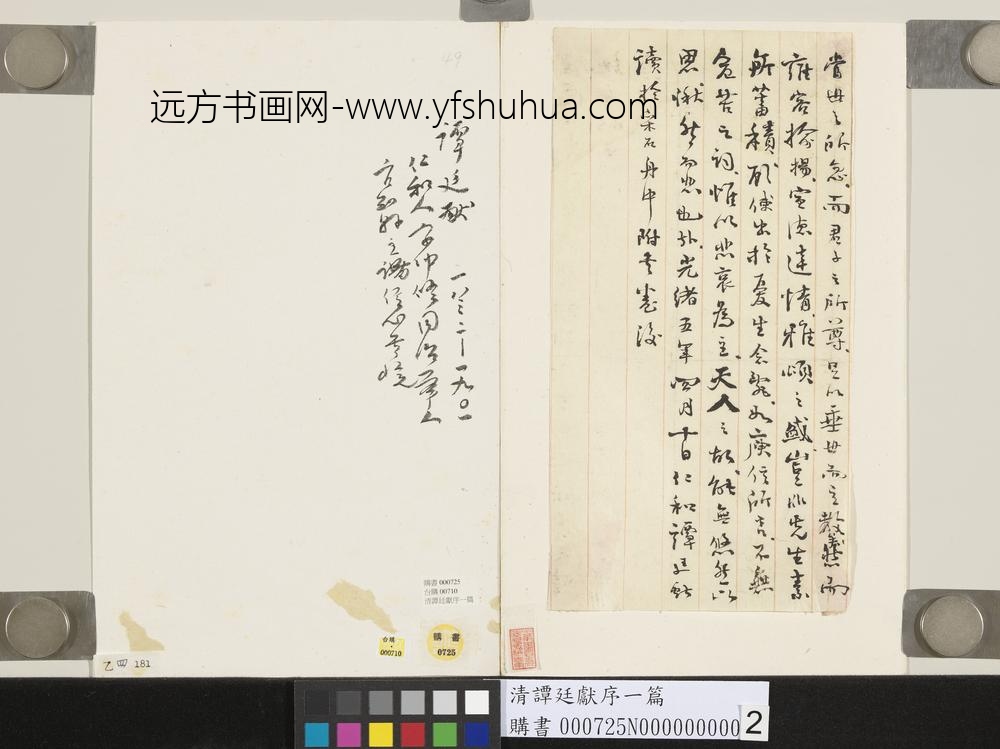 嘗世之所忽而君子之所尊足以垂世而立教然而
雍容揄揚宣德達情雅頌之盛豈非先生素
所蓄積
出於憂生念亂如庾信所言不無
危苦之詞惟以悲哀為主天人之故能無悠然以
思愀然而悲也外光緒五年四月十日仁和譚廷獻
讀於
石舟中附書卷後
远方书画网-www.yfshuhua.com
49
譚廷獻
一八三二-一九〇一
仁和人字仲修同治舉人
購書 000725
台購 00710
清譚廷獻序一篇
台購
000710
購書
0725
乙四 181
清譚廷獻序一篇
購書 000725N000000000
2